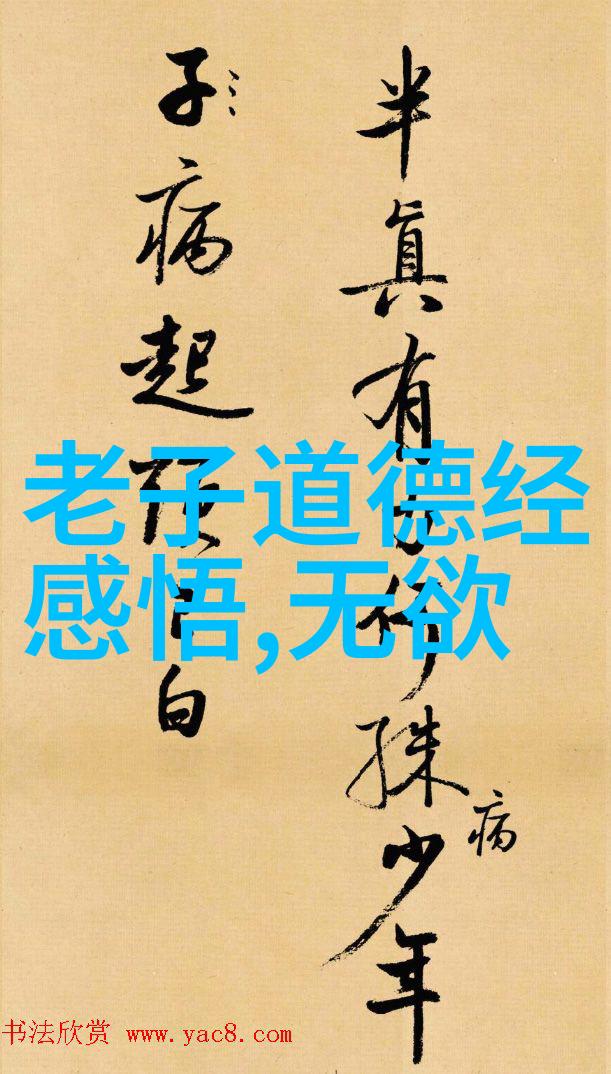 老子道德经
感悟,无欲
半真有何殊少年
病
子病起白
书法欣赏 www.yac8.com